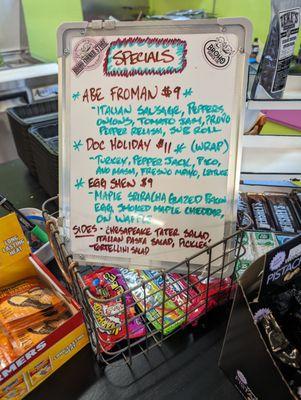 SPECIALS
PROVO
* ABE FROMAN $9 *
- ITALIAN SAUSAGE, PEPPERS,
ONIONS, TOMATO JAM, PROVO
PEPPER RELISH, SUB ROLL
* DOC HOLIDAY $11 * (WRAP)
- TURKEY, PEPPER JACK, PICO,
FRESNO MAYO, LETTUCE
* EGG SHEN $9 *
- MAPLE SRIRACHA GLAZED BACON
EGG, SMOKED MAPLE CHEDDAR,
ON WAFFLE
SIDES - CHESAPEAKE TATER SALAD,
ITALIAN PASTA SALAD, PICKLES
- TORTELLINI SALAD
PISTA